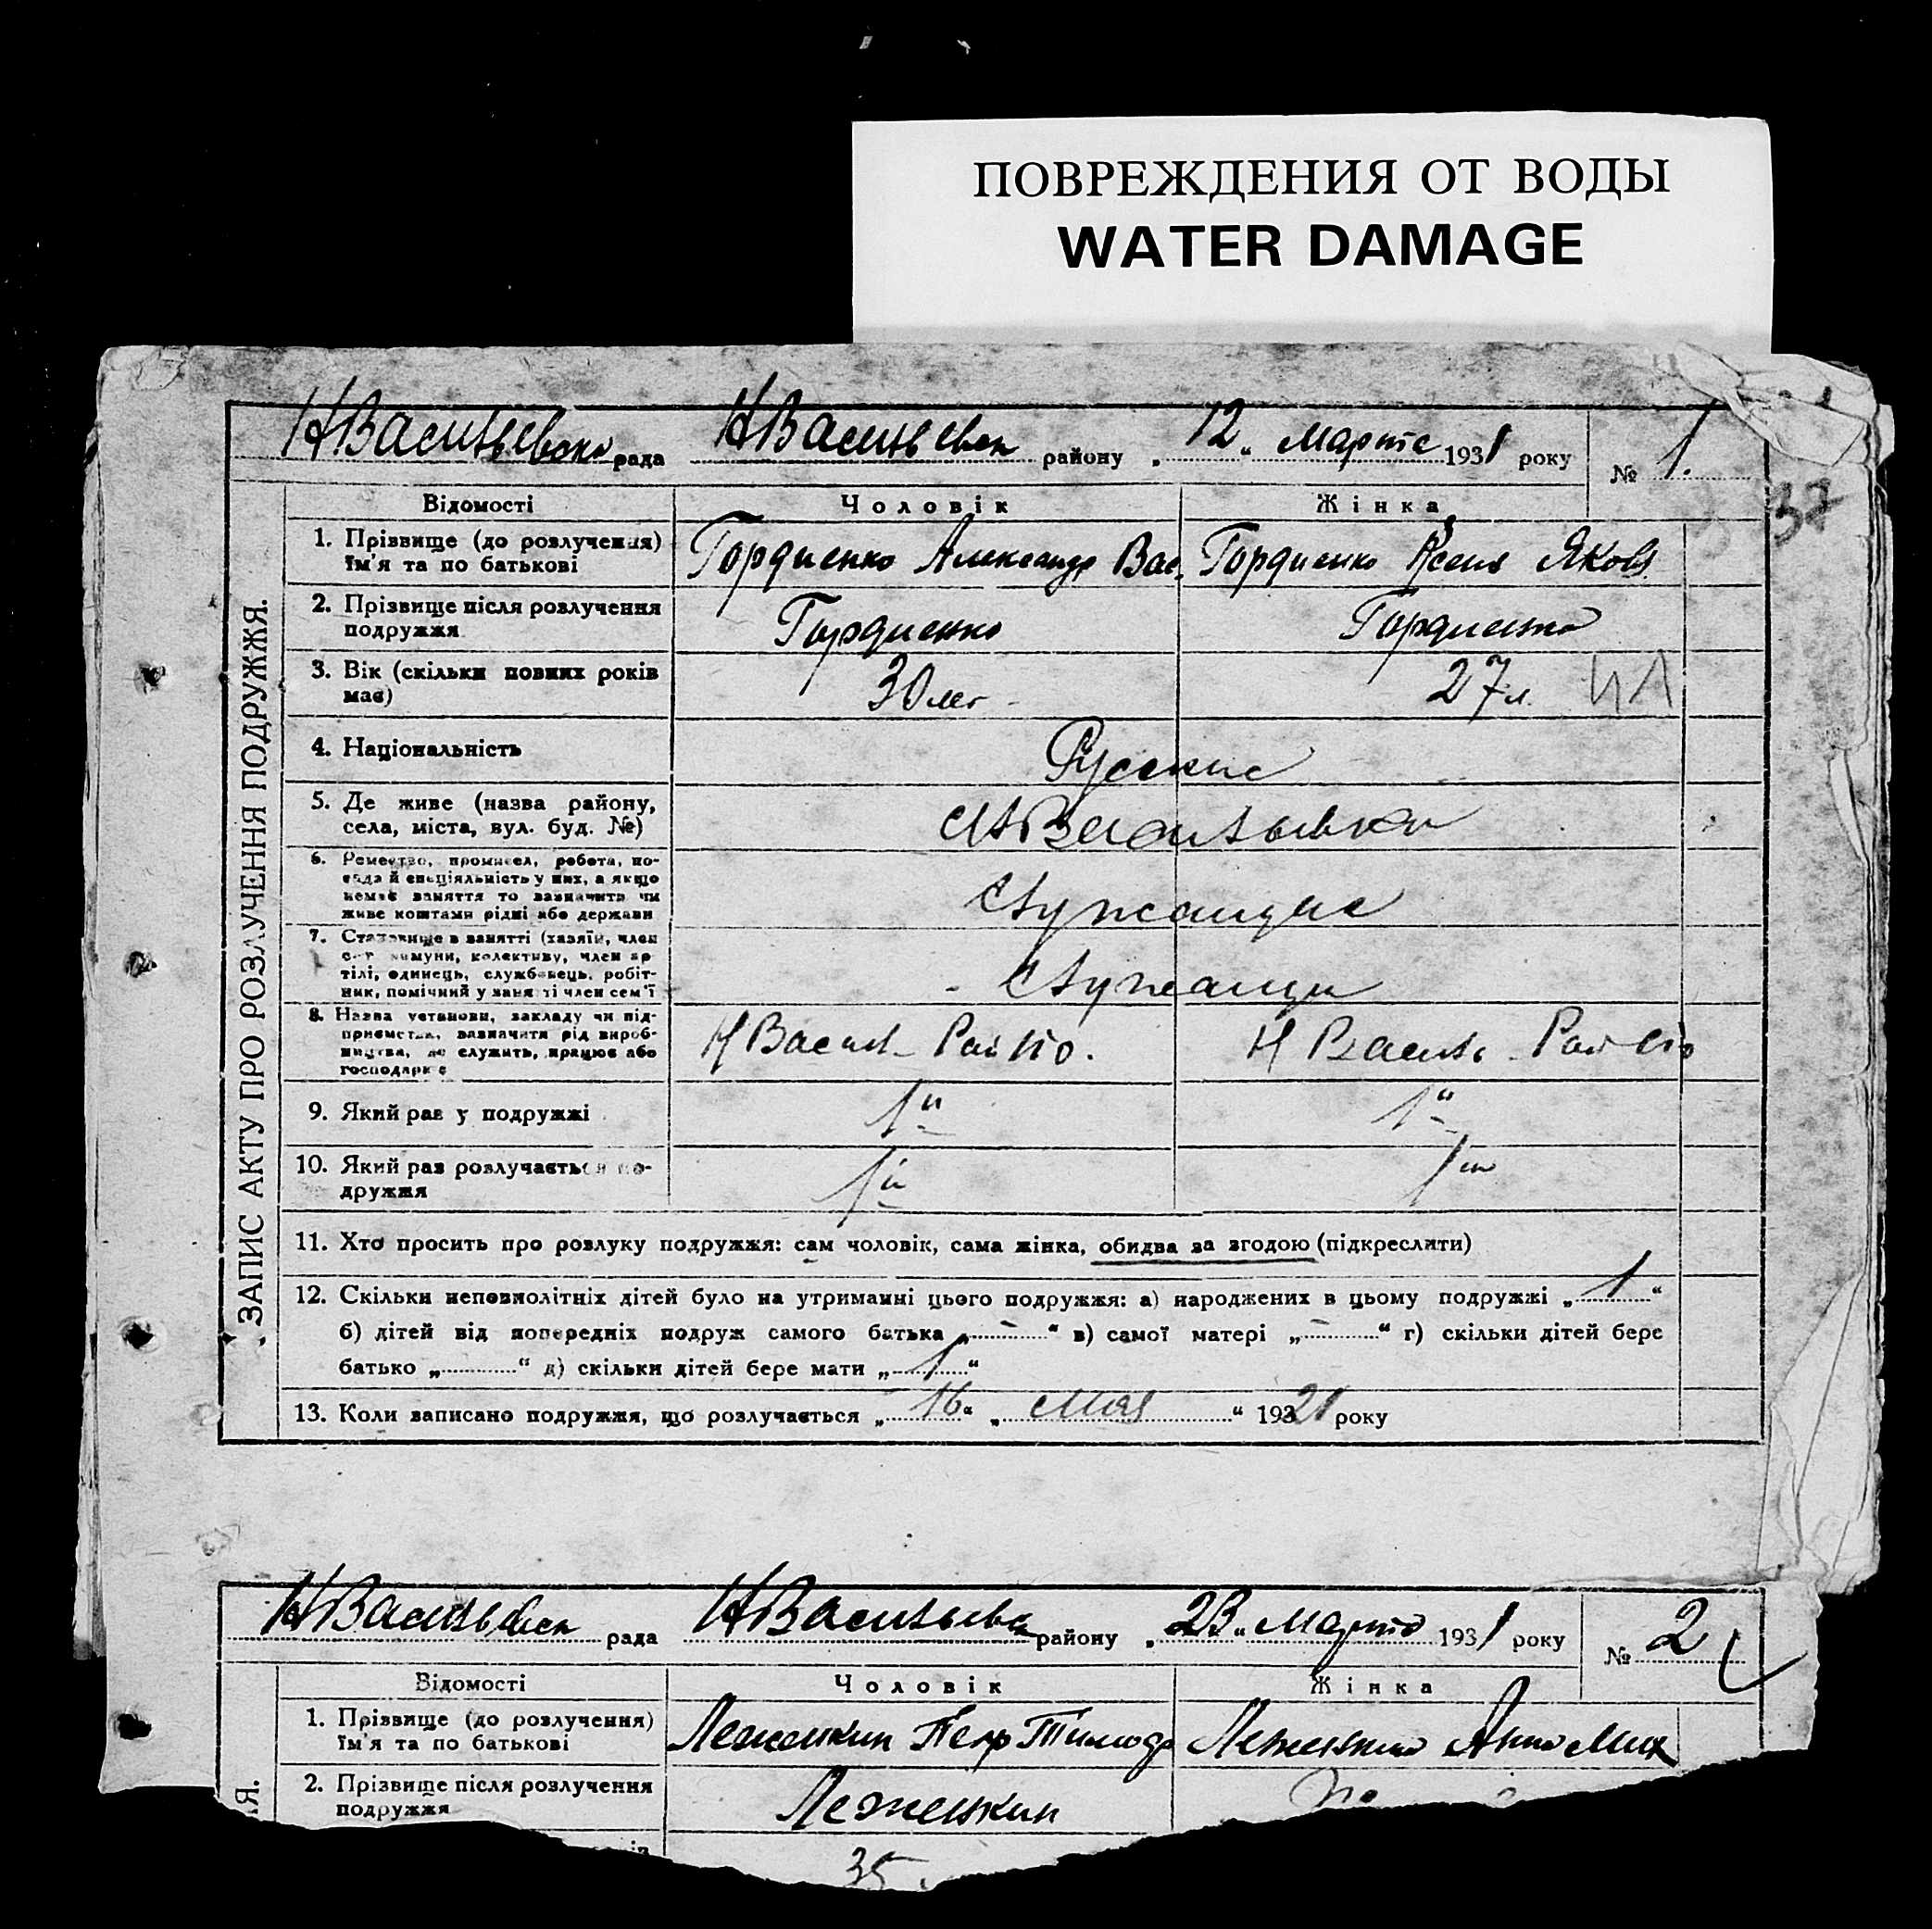 ПОВРЕЖДЕНИЯ ОТ ВОДЫ
WATER DAMAGE
рада району „12“ Марта 1931 року № 1.
37
„ЗАПИС АКТУ ПРО РОЗЛУЧЕННЯ ПОДРУЖЖЯ.
Відомості Чоловік Жінка
1. Прізвище (до розлучення) Гордиенко Александр Вас. Гордиенко Ксения Яковл
їм'я та по батькові
2. Прізвище після розлучення Гордиенко Гордиенко
подружжя
3. Вік (скільки повних років 30 лет 27 л.
має)
4. Національність Русские
5. Де живе (назва району, Н Васильевка
села, міста, вул. буд. №)
6. Ремество, промисел, робота, по-
сада й спеціяльність у них, а якщо
немає заняття то зазначити чи Служащие
живе коштами рідні або держави
7. Становище в занятті (хазяїн, член
комуни, колективу, член ар-
тілі, одинець, службовець, робіт- Служащи
ник, помічний у занятті член сем'ї
8. Назва установи, закладу чи під-
приємства, зазначити рід вироб- Н Васил-
ництва, де служить, працює або
господарює
9. Який раз у подружжі 1й 1й
10. Який раз розлучається по- 1й
дружжя
11. Хто просить про розлуку подружжя: сам чоловік, сама жінка, обидва за згодою (підкреслити)
12. Скільки неповнолітніх дітей було на утриманні цього подружжя: а) народжених в цьому подружжі „1“
б) дітей від попередніх подруж самого батька „-“ в) самої матері „-“ г) скільки дітей бере
батько „ “ д) скільки дітей бере мати „1“
13. Коли записано подружжя, що розлучається „16“ „Мая“ 19321 року
рада району „23“ Марта 1931 року № 2
Відомості Чоловік Жінка
1. Прізвище (до розлучення) Лежекин Петр Тимоф Анна Мих
їм'я та по батькові
2. Прізвище після розлучення
подружжя
35